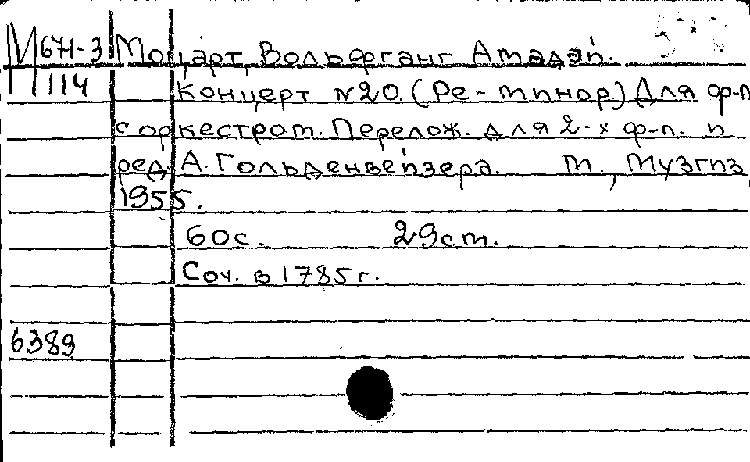 М671-3 Моцарт, Вольфганг Амадей.
М114 Концерт №20. (Ре-минор) Для ф-п
с оркестром. Перелож. для 2-х ф-п. и
ред. А. Гольденвейзера. М., Музгиз,
1955.
60с. 29см.
Соч. в 1785г.
6389